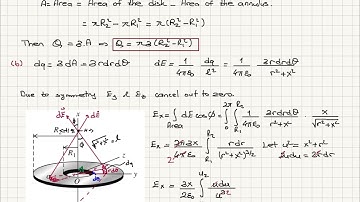 A = Area = Area of the disk _ Area of the annulus.
= πR₂² - πR₁² = π(R₂² - R₁²)
Then Q = ꝺ.A ⇒ Q = πꝺ(R₂² - R₁²)
(b) dq = ꝺdA = ꝺrdrdθ dE = 1/4πε₀ dq/l² = 1/4πε₀ ꝺrdrdθ/r²+x²
Due to symmetry Ey & Ez cancel out to zero.
Ex = ∫Area dE cosφ = ∫₀^2π ∫R₁^R₂ 1/4πε₀ ꝺrdrdθ/r²+x² x/√r²+x²
Ex = 2πꝺx/4πε₀ ∫R₁^R₂ rdr/(r²+x²)^3/2 Let u² = x²+r²
2udu = 2rdr
Ex = ꝺx/2ε₀ ∫u₁^u₂ udu/u³
dE dE
R₁
R₂
√r²+x² = l
dq